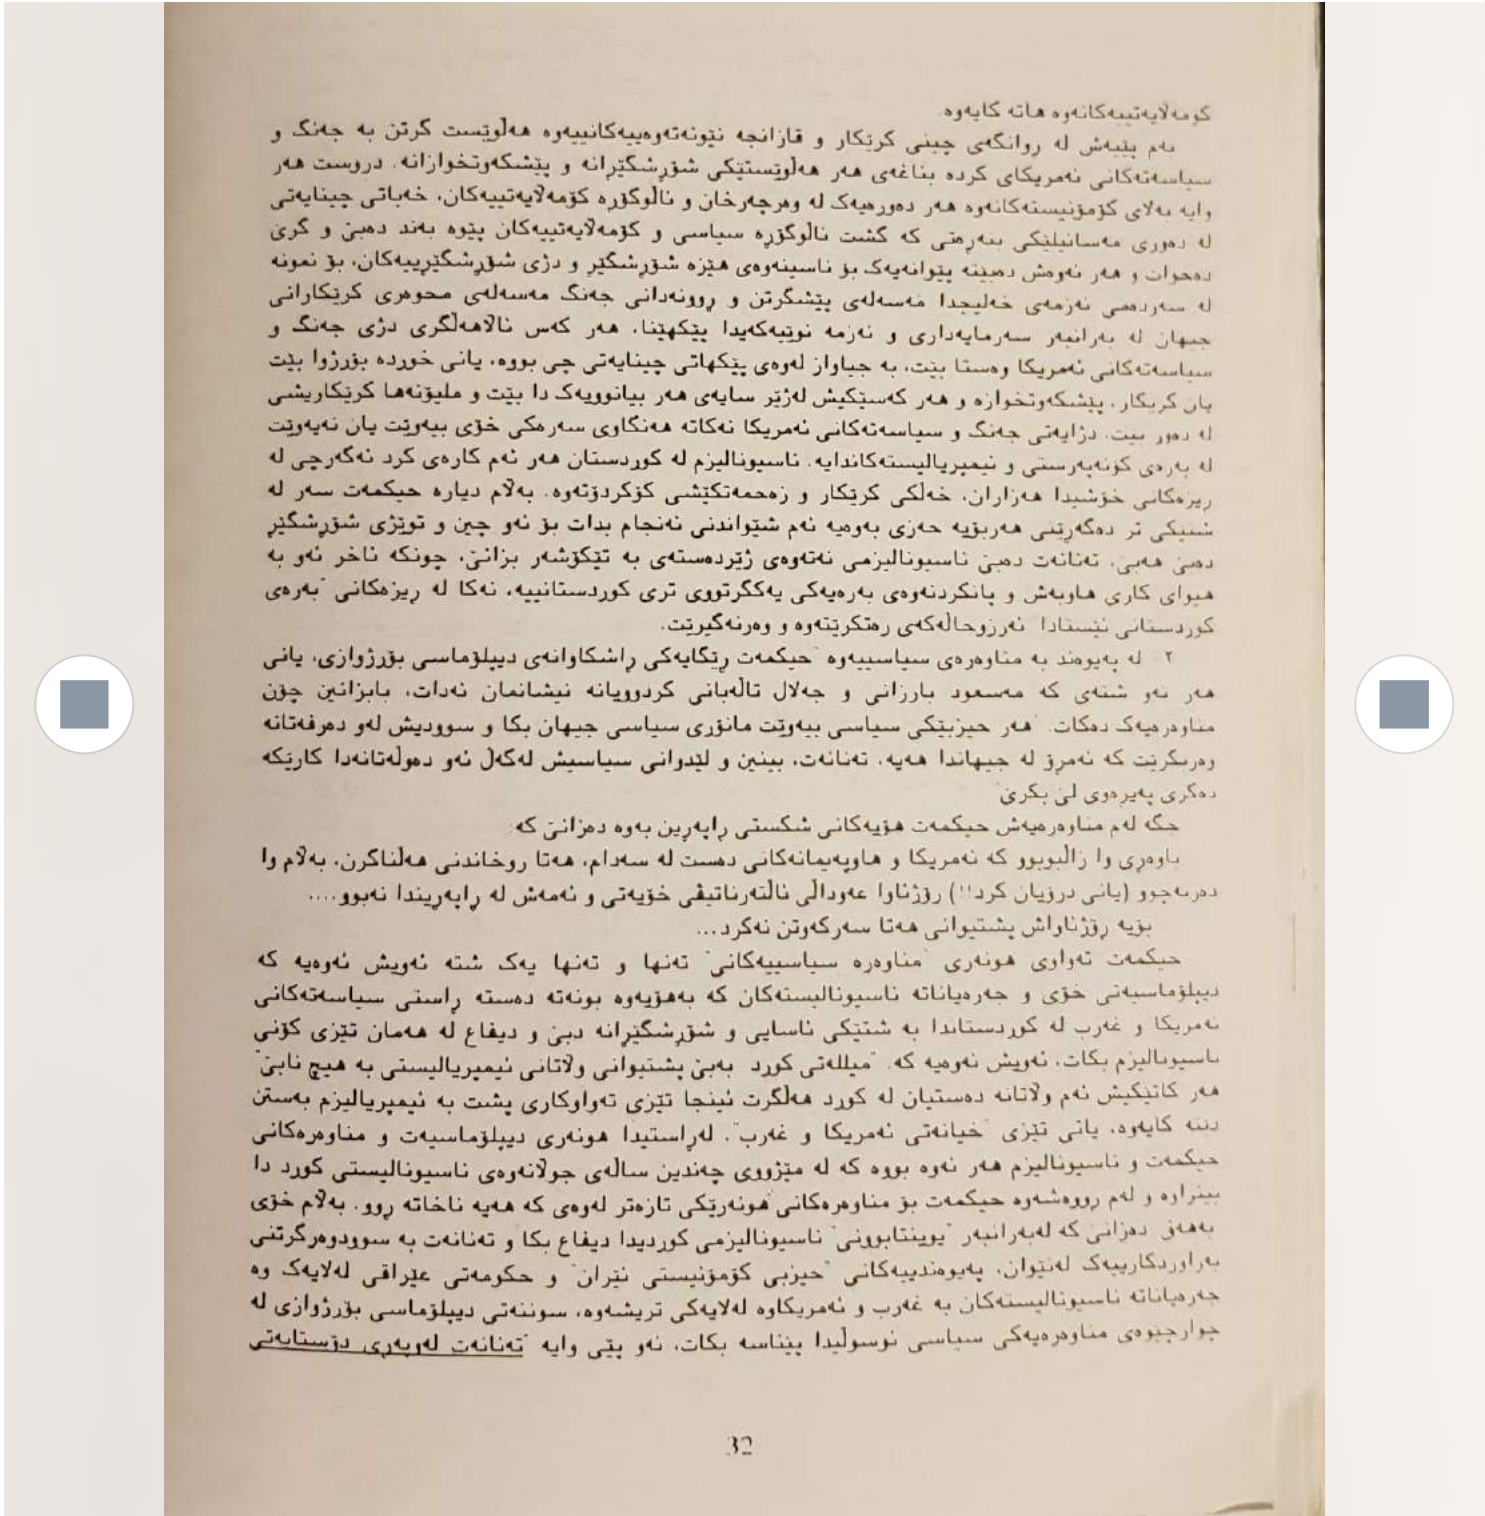 کۆمەڵایەتییەکانەوە هاتە کایەوە.
بەم پێیەش لە روانگەی چینی کرێکار و قازانجە نێونەتەوەییەکانییەوە هەڵوێست گرتن بە جەنگ و
سیاسەتەکانی ئەمریکای کردە بناغەی هەر هەڵوێستێکی شۆڕشگێڕانە و پێشکەوتخوازانە. دروست هەر
وایە بەلای کۆمۆنیستەکانەوە هەر دەورەیەک لە وەرچەرخان و ئاڵوگۆڕە کۆمەڵایەتییەکان، خەباتی چینایەتی
لە دەوری مەسائیلێکی بنەڕەتی کە گشت ئاڵوگۆڕە سیاسی و کۆمەڵایەتییەکان پێوە بەند دەبێ و گرێ
دەخوات و هەر ئەوەش دەبێتە پێوانەیەک بۆ ناسینەوەی هێزە شۆڕشگێڕ و دژی شۆڕشگێڕییەکان، بۆ نمونە
لە سەردەمی ئەزمەی خەلیجدا مەسەلەی پێشگرتن و ڕوونەدانی جەنگ مەسەلەی محوەری کرێکارانی
جیهان لە بەرانبەر سەرمایەداری و نەزمە نوێیەکەیدا پێکهێنا، هەر کەس ئاڵاهەڵگری دژی جەنگ و
سیاسەتەکانی ئەمریکا وەستا بێت، بە جیاواز لەوەی پێکهاتی چینایەتی چی بووە، یانی خوردە بۆرژوا بێت
یان کریکار، پێشکەوتخوازە و هەر کەسێکیش لەژێر سایەی هەر بیانوویەک دا بێت و ملیۆنەها کرێکاریشی
لە دەور بیت، دژایەتی جەنگ و سیاسەتەکانی ئەمریکا نەکاتە هەنگاوی سەرەکی خۆی بیەوێت یان نەیەوێت
لە بەرەی کۆنەپەرستی و ئیمپریالیستەکاندایە. ناسیونالیزم لە کوردستان هەر ئەم کارەی کرد ئەگەرچی لە
ریزەکانی خۆشیدا هەزاران، خەڵکی کرێکار و زەحمەتکێشی کۆکردۆتەوە. بەڵام دیارە حیکمەت سەر لە
شتیکی تر دەگەرێنی هەربۆیە حەزی بەوەیە ئەم شێواندنی ئەنجام بدات بۆ ئەو چین و توێژی شۆڕشگێڕ
دەبێ هەبێ، تەنانەت دەبێ ناسیونالیزمی نەتەوەی ژێردەستەی بە تێکۆشەر بزانێ، چونکە ئاخر ئەو بە
هیوای کاری هاوبەش و بانکردنەوەی بەرەیەکی یەکگرتووی تری کوردستانییە، نەکا لە ریزەکانی "بەرەی
کوردستانی ئێستادا" ئەرزوحاڵەکەی رەتکرێتەوە و وەرنەگیرێت.
٢ لە پەیوەند بە مناوەرەی سیاسییەوە "حیکمەت ڕێگایەکی ڕاشکاوانەی دیپلۆماسی بۆرژوازی، یانی
هەر ئەو شتەی کە مەسعود بارزانی و جەلال تاڵەبانی کردوویانە نیشانمان ئەدات، بابزانین چۆن
مناوەرەیەک دەکات. "هەر حیزبێکی سیاسی بیەوێت مانۆری سیاسی جیهان بکا و سوودیش لەو دەرفەتانە
وەربگرێت کە ئەمرۆ لە جیهاندا هەیە، تەنانەت، بینین و لێدوانی سیاسیش لەگەڵ ئەو دەوڵەتانەدا کارێکە
دەکری پەیرەوی لێ بکری"
جگە لەم مناوەرەیەش حیکمەت هۆیەکانی شکستی ڕاپەڕین بەوە دەزانێ کە:
باوەڕی وا زاڵبوبوو کە ئەمریکا و هاوپەیمانەکانی دەست لە سەدام، هەتا روخاندنی هەڵناگرن، بەڵام وا
دەرنەچوو (یانی درۆیان کرد!!) رۆژئاوا عەوداڵی ئاڵتەرناتیڤی خۆیەتی و ئەمەش لە ڕاپەڕیندا نەبوو....
بۆیە ڕۆژئاواش پشتیوانی هەتا سەرکەوتن نەکرد...
حیکمەت تەواوی هونەری "مناوەرە سیاسییەکانی" تەنها و تەنها یەک شتە ئەویش ئەوەیە کە
دیپلۆماسیەتی خۆی و جەرەیاناتە ناسیونالیستەکان کە بەهۆیەوە بونەتە دەستە ڕاستی سیاسەتەکانی
ئەمریکا و غەرب لە کوردستاندا بە شتێکی ئاسایی و شۆڕشگێڕانە دبێ و دیفاع لە هەمان تێزی کۆنی
ناسیونالیزم بکات، ئەویش ئەوەیە کە. "میللەتی کورد بەبێ پشتیوانی وڵاتانی ئیمپریالیستی بە هیچ نابێ"
هەر کاتێکیش ئەم وڵاتانە دەستیان لە کورد هەڵگرت ئینجا تێزی تەواوکاری پشت بە ئیمپریالیزم بەستن
دێتە کایەوە، یانی تێزی "خیانەتی ئەمریکا و غەرب". لەڕاستیدا هونەری دیپلۆماسیەت و مناوەرەکانی
حیکمەت و ناسیونالیزم هەر ئەوە بووە کە لە مێژووی چەندین ساڵەی جولانەوەی ناسیونالیستی کورد دا
بینراوە و لەم رووەشەوە حیکمەت بۆ مناوەرەکانی هونەرێکی تازەتر لەوەی کە هەیە ناخاتە ڕوو. بەڵام خۆی
بەهەق دەزانێ کە لەبەرانبەر "پوینتابوونی" ناسیونالیزمی کوردیدا دیفاع بکا و تەنانەت بە سوودوەرگرتنی
بەراوردکارییەک لەنێوان، پەیوەندییەکانی "حیزبی کۆمۆنیستی ئێران" و حکومەتی عێراقی لەلایەک وە
جەرەیاناتە ناسیونالیستەکان بە غەرب و ئەمریکاوە لەلایەکی تریشەوە، سوننەتی دیپلۆماسی بۆرژوازی لە
چوارچێوەی مناوەرەیەکی سیاسی ئوسوڵیدا پێناسە بکات، ئەو پێی وایە "تەنانەت لەوپەڕی دۆستایەتی
32